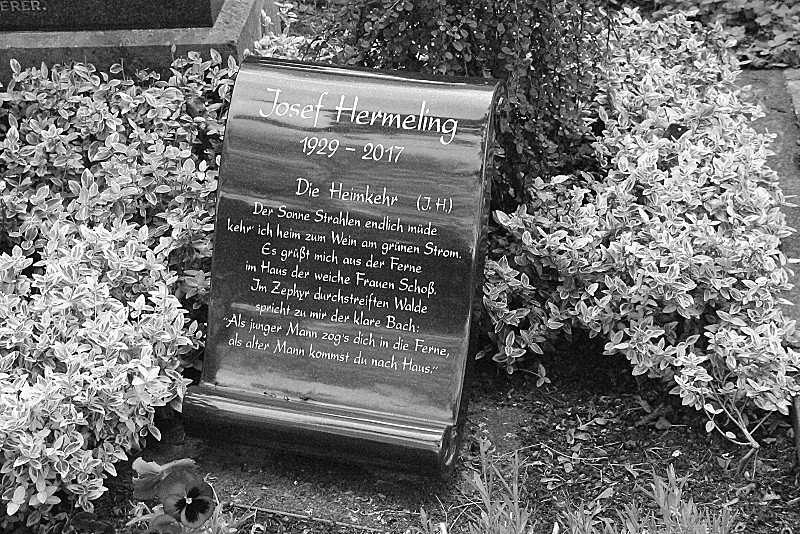 ERER.
Josef Hermeling
1929 – 2017
Die Heimkehr (J.H.)
Der Sonne Strahlen endlich müde
kehr' ich heim zum Wein am grünen Strom.
Es grüßt mich aus der Ferne
im Haus der weiche Frauen Schoß.
Im Zephyr durchstreiften Walde
spricht zu mir der klare Bach:
"Als junger Mann zog's dich in die Ferne,
als alter Mann kommst du nach Haus."